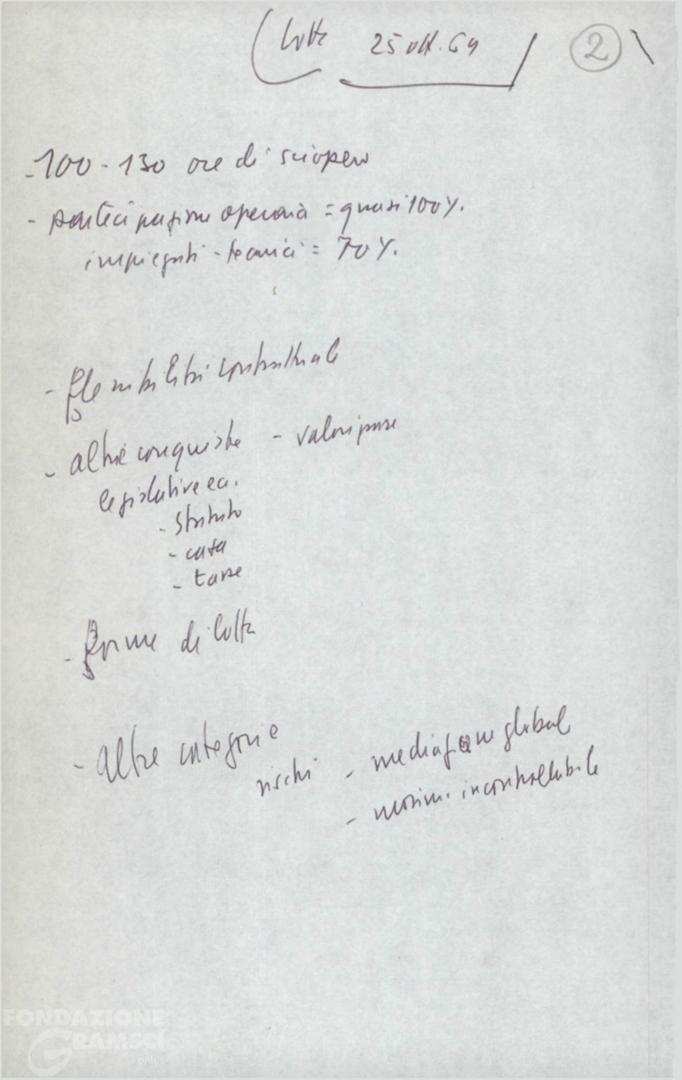 Lotte 25 ott. 69 2
- 100 - 130 ore di sciopero
- partecipazione operaia = quasi 100%.
impiegati - tecnici = 70%.
- flessibilità contrattuale
- altre conquiste -
legislative ec.
- Statuto
- casa
- tasse
- forme di lotta
- altre categorie
rischi - mediazione globale
- incontrollabile
FONDAZIONE
GRAMSCI